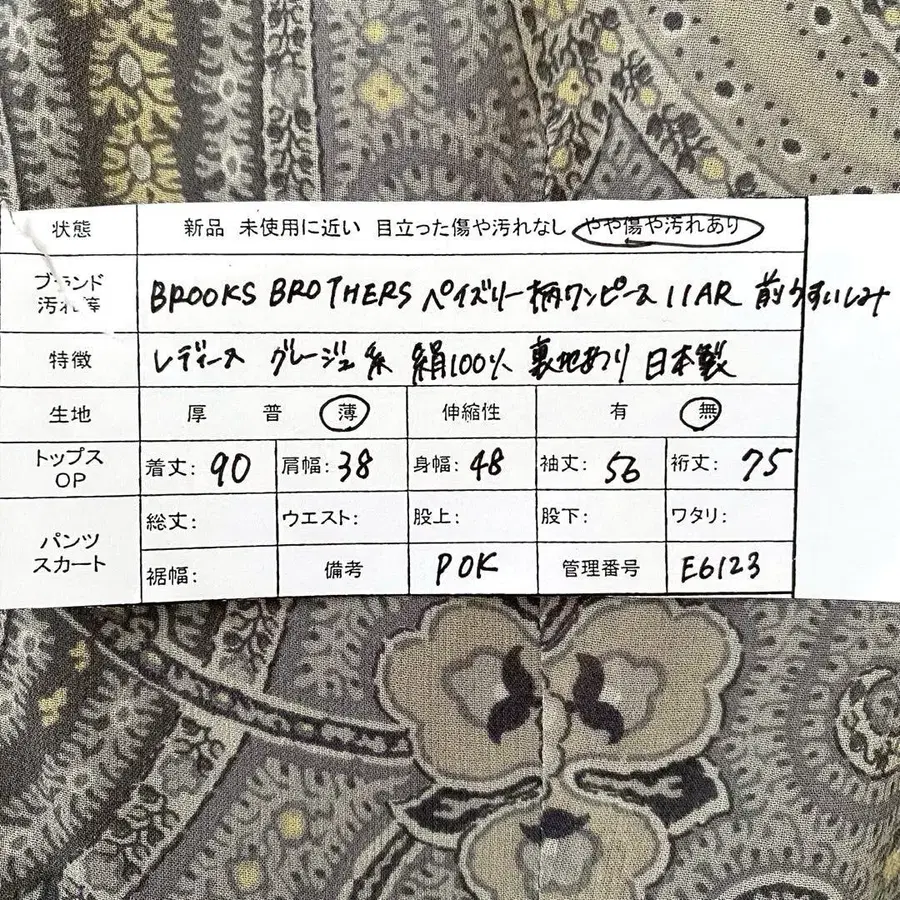 状態 新品 未使用に近い 目立った傷や汚れなし やや傷や汚れあり
ブランド 汚れ等 BROOKS BROTHERS ペイズリー柄ワンピース 11AR 前うすいしみ
特徴 レディース グレージュ系 絹100% 裏地あり 日本製
生地 厚 普 薄 伸縮性 有 無
トップス OP 着丈: 90 肩幅: 38 身幅: 48 袖丈: 56 裄丈: 75
パンツ スカート 総丈: ウエスト: 股上: 股下: ワタリ:
裾幅: 備考 POK 管理番号 E6123